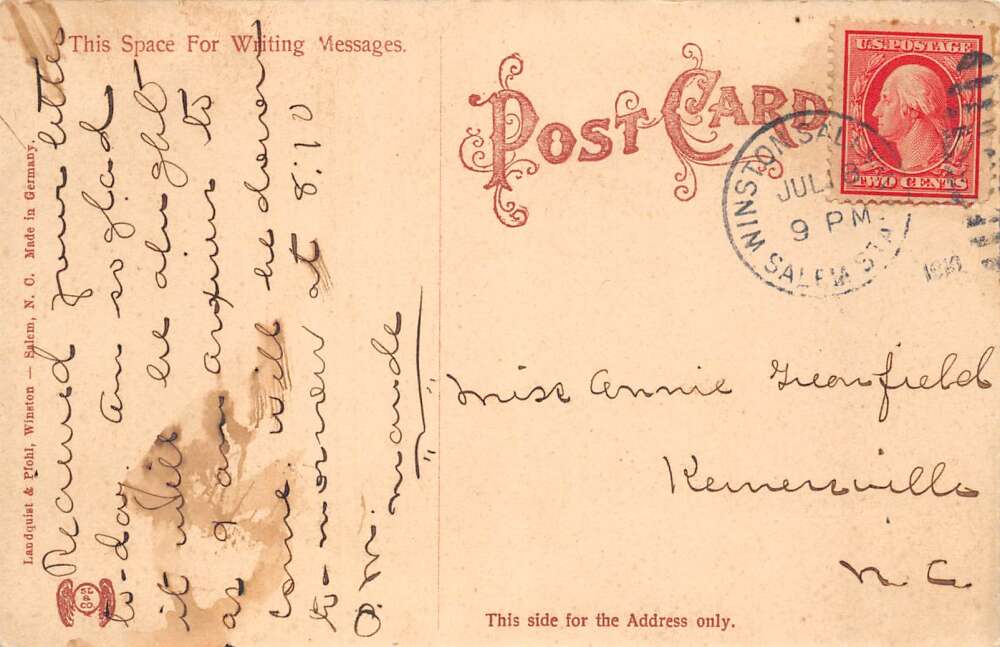 This Space For Writing Messages.
POST CARD
U.S. POSTAGE
TWO CENTS
WINSTON SALEM
JUL
9 PM
SALEM STA
Landquist & Pfohl, Winston — Salem, N. C. Made in Germany.
Received your letter
to-day. am so glad
it will be alright
as I am anxious to
come. will be down
to-morrow at 8.10
O.W. maude
Miss Annie Greenfield
Kernersville
N C
This side for the Address only.